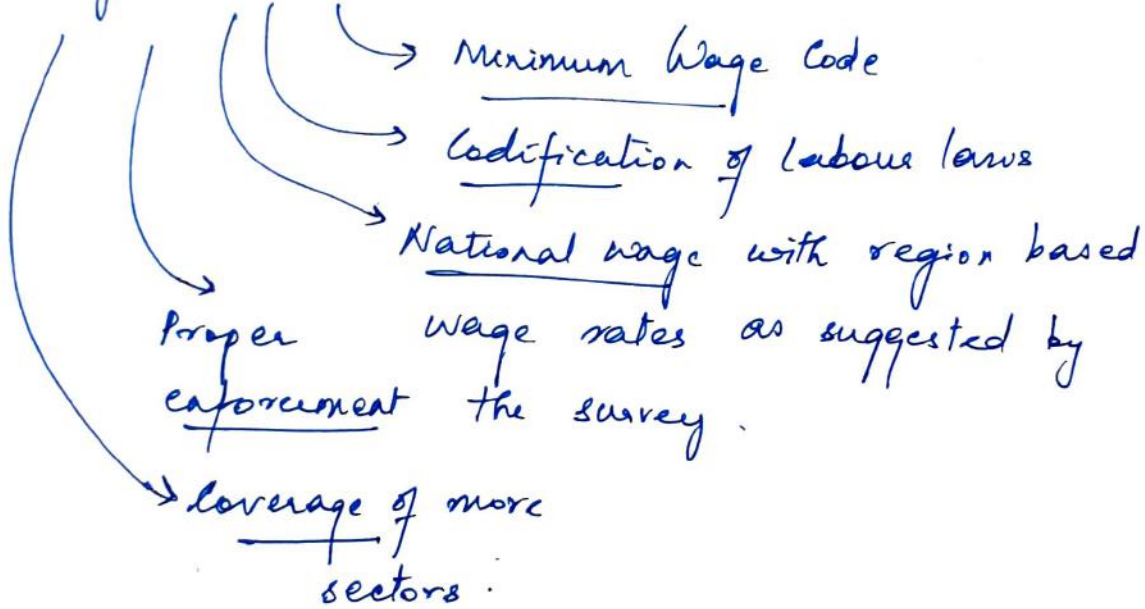 Minimum Wage Code
Codification of Labour laws
National wage with region based
Proper wage rates as suggested by
enforcement the survey.
Coverage of more
sectors.